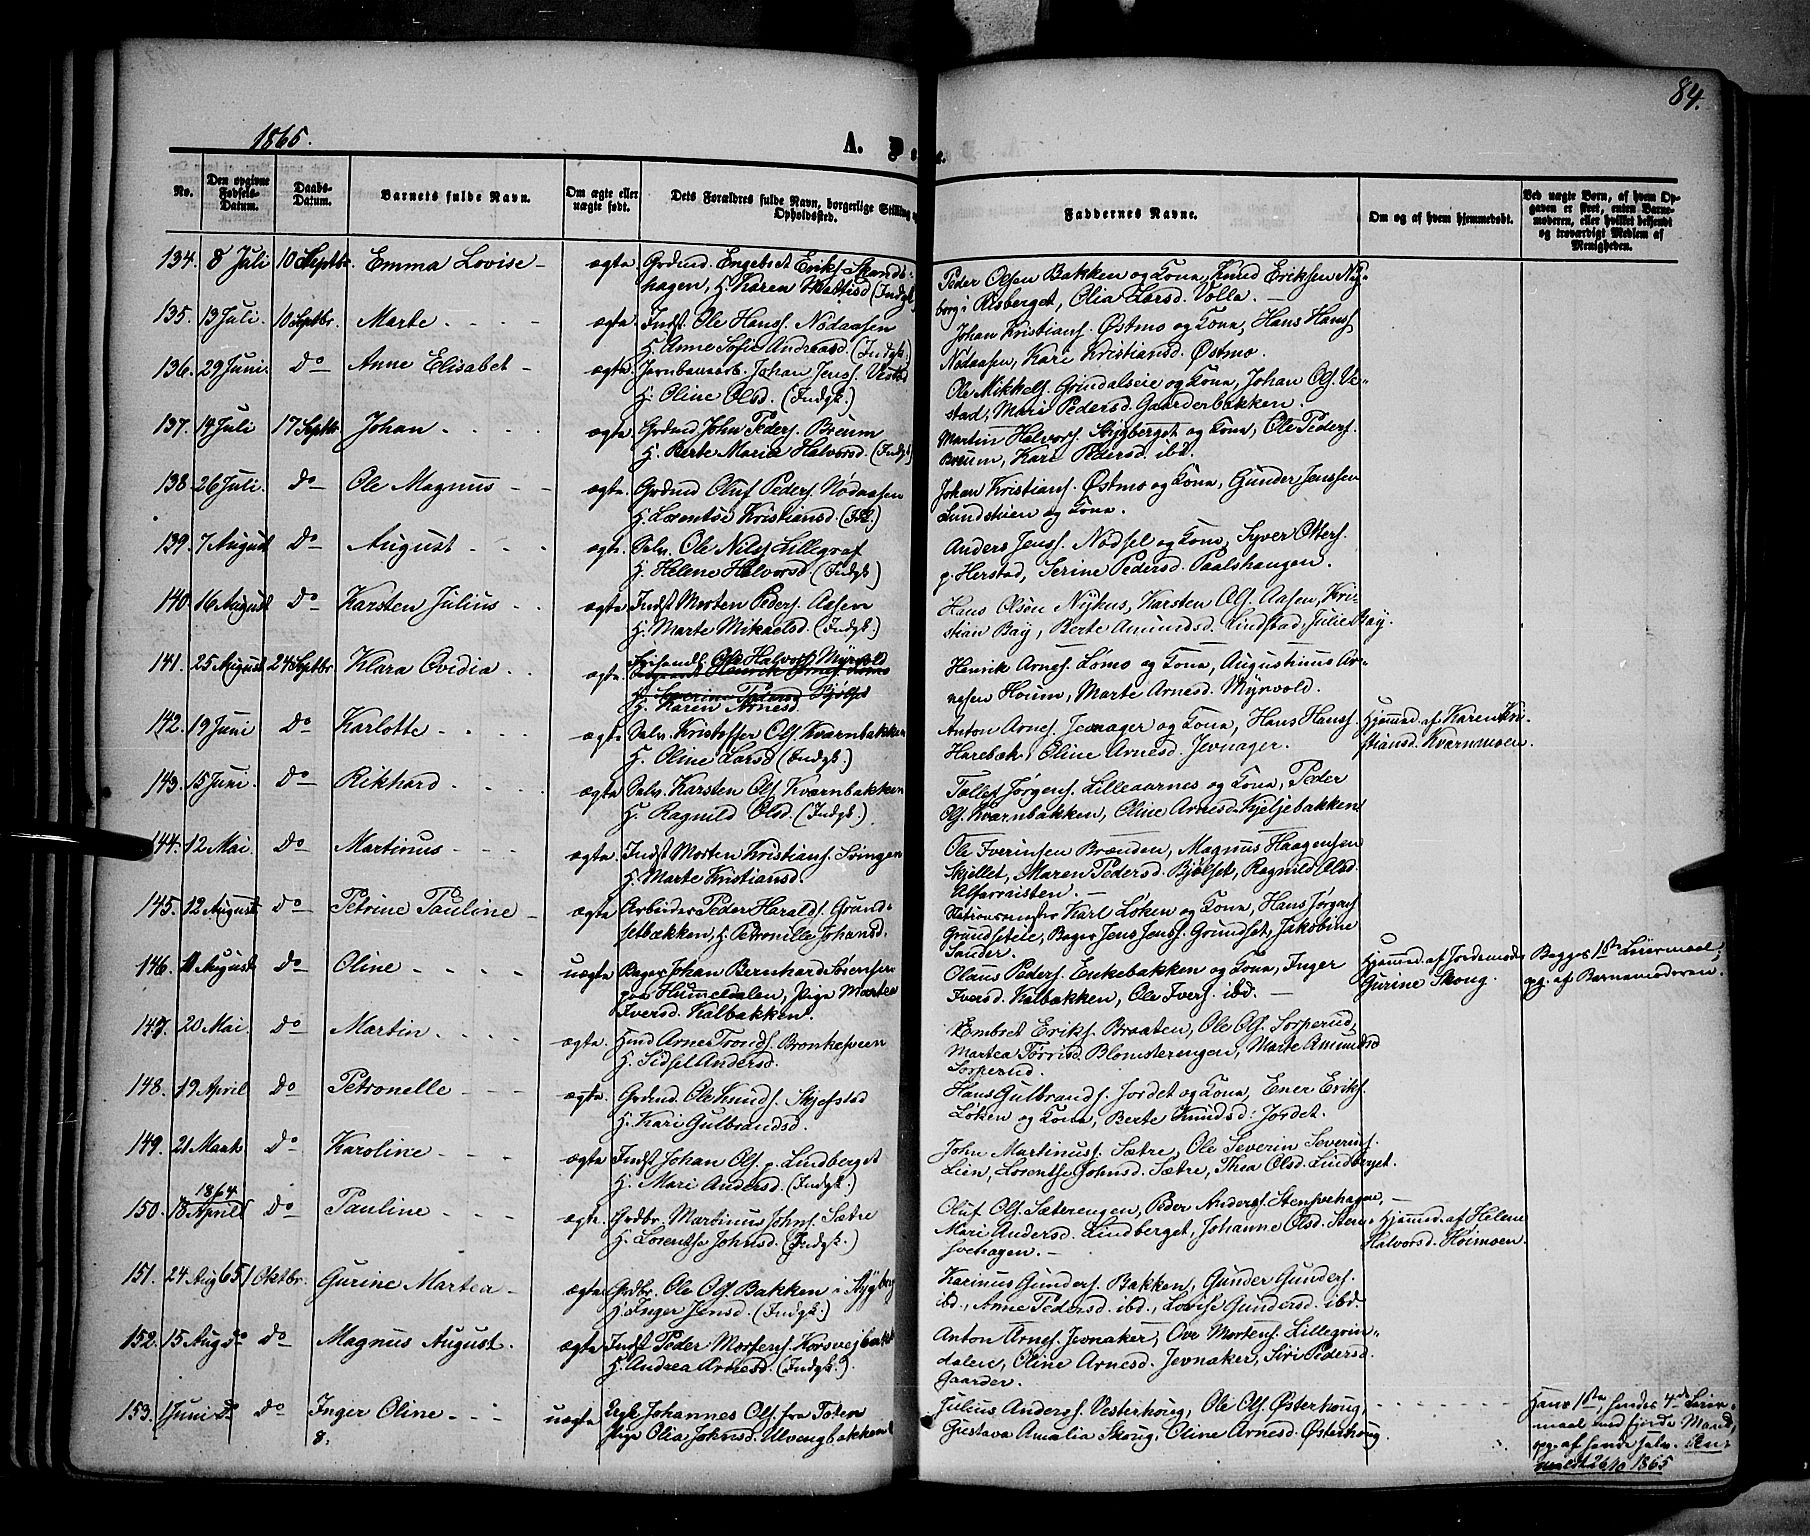 84.
1865.
A. D
No.
Den opgivne Fødsels-Datum.
Daabs-Datum.
Barnets fulde Navn.
Om ægte eller uægte født.
Dets Forældres fulde Navn, borgerlige Stilling og Opholdssted.
Faddernes Navne.
Om og af hvem hjemmedøbt.
Ved uægte Børn, af hvem Opgaven er skeet, enten Barnemoderen, eller hvilket bekjendt og troværdigt Medlem af Menigheden.
134. 8 Juli 10 Septbr. Emma Lovise - ægte Grdmd. Engebret Eriks. Strands-
hagen, H. Karen (Indgk.)
Peder Olsen Bakken og Kona, Knud Eriksen Ny-
borg i Risberget, Olia Larsd. Volla. -
135. 13 Juli. 10 Septbr. Marte - - - - ægte. Indst. Ole Hanss. Nødaasen
H. Anne Sofie Andreasd. (Indgk.)
Johan Kristians. Østmo og Kona, Hans Hanss.
Nødaasen, Kari Kristiansd. Østmo.
136. 29 Juni Do Anne Elisabet - ægte. Jernbanearb. Johan Jenss. Vestad
H. Oline Olsd. (Indgk.)
Ole Mikkels. Grindalseie og Kona, Johan Ols. Ve-
stad, Mari Pedersd. Gaarderbakken.
137. 14 Juli 17 Septbr. Johan - - - - ægte Grdmd John Peders. Breum
H. Berte Maria Halvorsd. (Indgk.)
Martin Halvors. Stygberget og Kona, Ole Peders.
Breum, Kari Pedersd. ibd.
138. 26 Juli. Do Ole Magnus - - ægte. Grdmd Oluf Peders. Nødaasen
H. Lorentse Kristiansd. (Igk.)
Johan Kristians. Østmo og Kona, Gunder Jenssen
Sundstuen og Kona.
139. 7 August Do August - - - ægte. Selv. Ole Nils. Lillegraf
H. Helene Halvorsd. (Indgk.)
Anders Jenss. Nodsel og Kona, Syver Otters.
p. Herstad, Serine Pedersd. Paalshaugen.
140. 16 August Do Karsten Julius - - ægte Indst Morten Peders. Aasen
H. Marte Mikaelsd. (Indgk.)
Hans Olsen Nyhus, Karsten Ols. Aasen, Kri-
stian Bay, Berte Amundsd. Lindstad, Julie Bay.
141. 25 August 24 Septbr. Klara Ovidia - - ægte. Ole Halvors. Myrvold
H. Karen Arnesd.
Henrik Arnes. Lømo og Kona, Augustinus Ar-
nesen Houm, Marte Arnesd. Myrvold.
142. 19 Juni Do Karlotte - - - - ægte Selv. Kristoffer Ols. Kvarnbakken
H. Oline Larsd. (Indgk.)
Anton Arnes. Jevnager og Kona, Hans Hanss.
Harebak, Oline Arnesd. Jevnager.
Hjemmed. af Karen Kri-
stiansd. Kvarnmoen.
143. 15 Juni. Do Rikhard - - - - ægte Selv. Karsten Ols. Kvarnbakken
H. Ragnild Olsd. (Indgk.)
Tollef Jørgens. Lilleaarnes og Kona, Peder
Ols. Kvarnbakken, Oline Arnesd. Kjeljebakken.
144. 12 Mai. Do Martinus - - - ægte. Indst Morten Kristians. Svingen
H. Marte Kristiansd.
Ole Iverinsen Brænden, Magnus Haagensen
Skjellet, Maren Pedersd. Bjølset, Ragnild Olsd.
Alfarraisten. -
145. 12 August Do Petrine Pauline - ægte Arbeider Peder Haralds. Grund-
setbækken, H. Petronille Johansd.
Karl Løken og Kona, Hans Jørgens.
Grundseteie, Bager Jens Jenss. Grundset, Jakobine
Sander.
146. 11 August Do Oline - - - - uægte Bager Johan Bernhard Sørensen
paa Hummeldalen, Pige Martea
Iversd. Kalbakken.
Olaus Peders. Enkebakken og Kona, Inger
Iversd. Kalbakken, Ole Ivers. ibd. -
Hjemmed. af Jordemoder
Gurine Skoug.
Begges 1ste Leiermaal;
opg. af Barnemoderen.
147. 20 Mai Do Martin - - - - ægte. Hmd Arne Tronds. Bronkeveien
H. Sidsel Andersd.
Embret Eriks. Braaten, Ole Ols. Sorperud,
Martea Torrisd. Blomsterengen, Marte Amundsd
Sorperud.
148. 19 April Do Petronelle - - - ægte. Grdmd. Ole Knuds. Skjefstad
H. Kari Gulbrandsd.
Hans Gulbrands. Jordet og Kona, Ener Eriks.
Løken og Kona, Berte Knudsd. Jordet.
149. 21 Marts Do Karoline - - - ægte Indst Johan Ols. p. Lindberget
H. Mari Andersd. (Indgk.)
John Martinuss. Sætre, Ole Severin Severins.
Lein, Lorentse Johnsd. Sætre, Thea Olsd. Lindberget.
1864
150. 18 April Do Pauline - - - ægte. Grdbr. Martinus Johns. Sætre
H. Lorentse Johnsd. (Indgk.)
Oluf Ols. Sæterengen, Peder Anders. Stensvehagen, -
Mari Andersd. Lindberget, Johanne Olsd. Sten-
svehagen. -
Hjemmed. af Helene
Halvorsd. Hoimoen.
151. 24 Aug 65 1 Oktbr. Gurine Martea - ægte Grdbr. Ole Ols. Bakken i Stygberg
H. Inger Jensd. (Indgk.)
Karinus Gunders. Bakken, Gunder Gunders.
ibd., Anne Pedersd. ibd., Lovise Gundersd. ibd.
152. 15 Aug do Do Magnus August. - ægte Indst Peder Mortens. Korsvejbakk
H. Andrea Arnesd (Indgk.)
Anton Arnes. Jevnaker, Ove Mortens. Lillegrin-
dalen, Oline Arnesd. Jevnaker, Siri Pedersd.
Gaarder.
153. 1 Juni do Do Inger Oline - - - uægte Ungk. Johannes Ols. fra Toten
8. Pige Olia Johnsd. Ulvengbakken
Julius Anderss. Vesterhoug, Ole Ols. Østerhoug,
Gustava Amalia Skoug, Oline Arnesd. Østerhoug
Hans 1ste, hendes 4de Leier-
maal med fjerde Mand,
opg. af hende selv. An-
meldt 26/10 1865